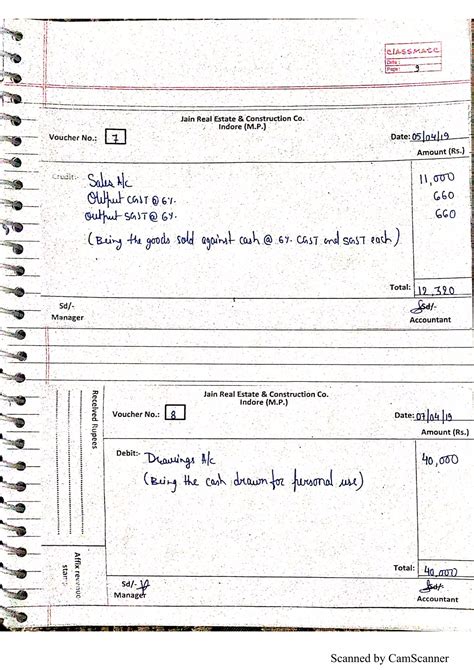 CLASSMATE
Date :
Page : 9
Jain Real Estate & Construction Co.
Indore (M.P.)
Voucher No.: 7
Date: 05/04/19
Amount (Rs.)
Credit:- Sales A/c 11,000
Output CGST @ 6% 660
Output SGST @ 6%. 660
(Being the goods sold against cash @ 6%. CGST and SGST each)
Total: 12,320
Sd/- Sd/-
Manager Accountant
Jain Real Estate & Construction Co.
Indore (M.P.)
Voucher No.: 8
Date: 07/04/19
Amount (Rs.)
Received Rupees
Debit:- Drawings A/c 40,000
(Being the cash drawn for personal use)
Affix revenue
stamp
Total: 40,000
Sd/- Sd/-
Manager Accountant
Scanned by CamScanner